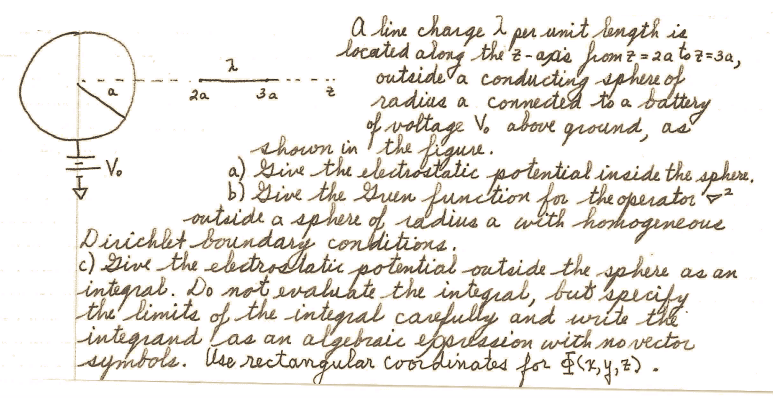 A line charge λ per unit length is
located along the z-axis from z = 2a to z = 3a,
outside a conducting sphere of
radius a connected to a battery
of voltage V₀ above ground, as
shown in the figure.
a) Give the electrostatic potential inside the sphere.
b) Give the Green function for the operator ∇²
outside a sphere of radius a with homogeneous
Dirichlet boundary conditions.
c) Give the electrostatic potential outside the sphere as an
integral. Do not evaluate the integral, but specify
the limits of the integral carefully and write the
integrand as an algebraic expression with no vector
symbols. Use rectangular coordinates for Φ(x,y,z).
λ
a
2a 3a z
V₀